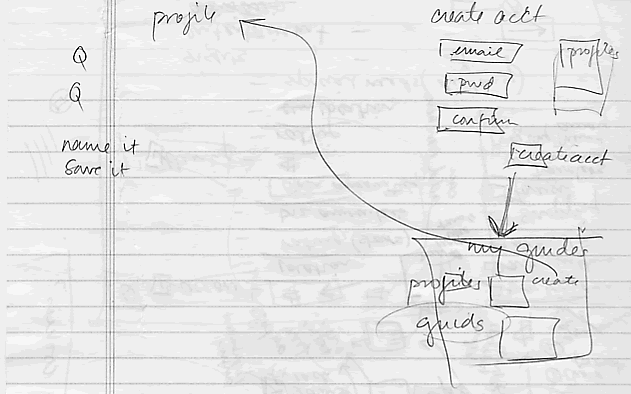 profile
Q
Q
name it
save it
create acct
email
pwd
confirm
profiles
create acct
my guides
profiles
create
guids